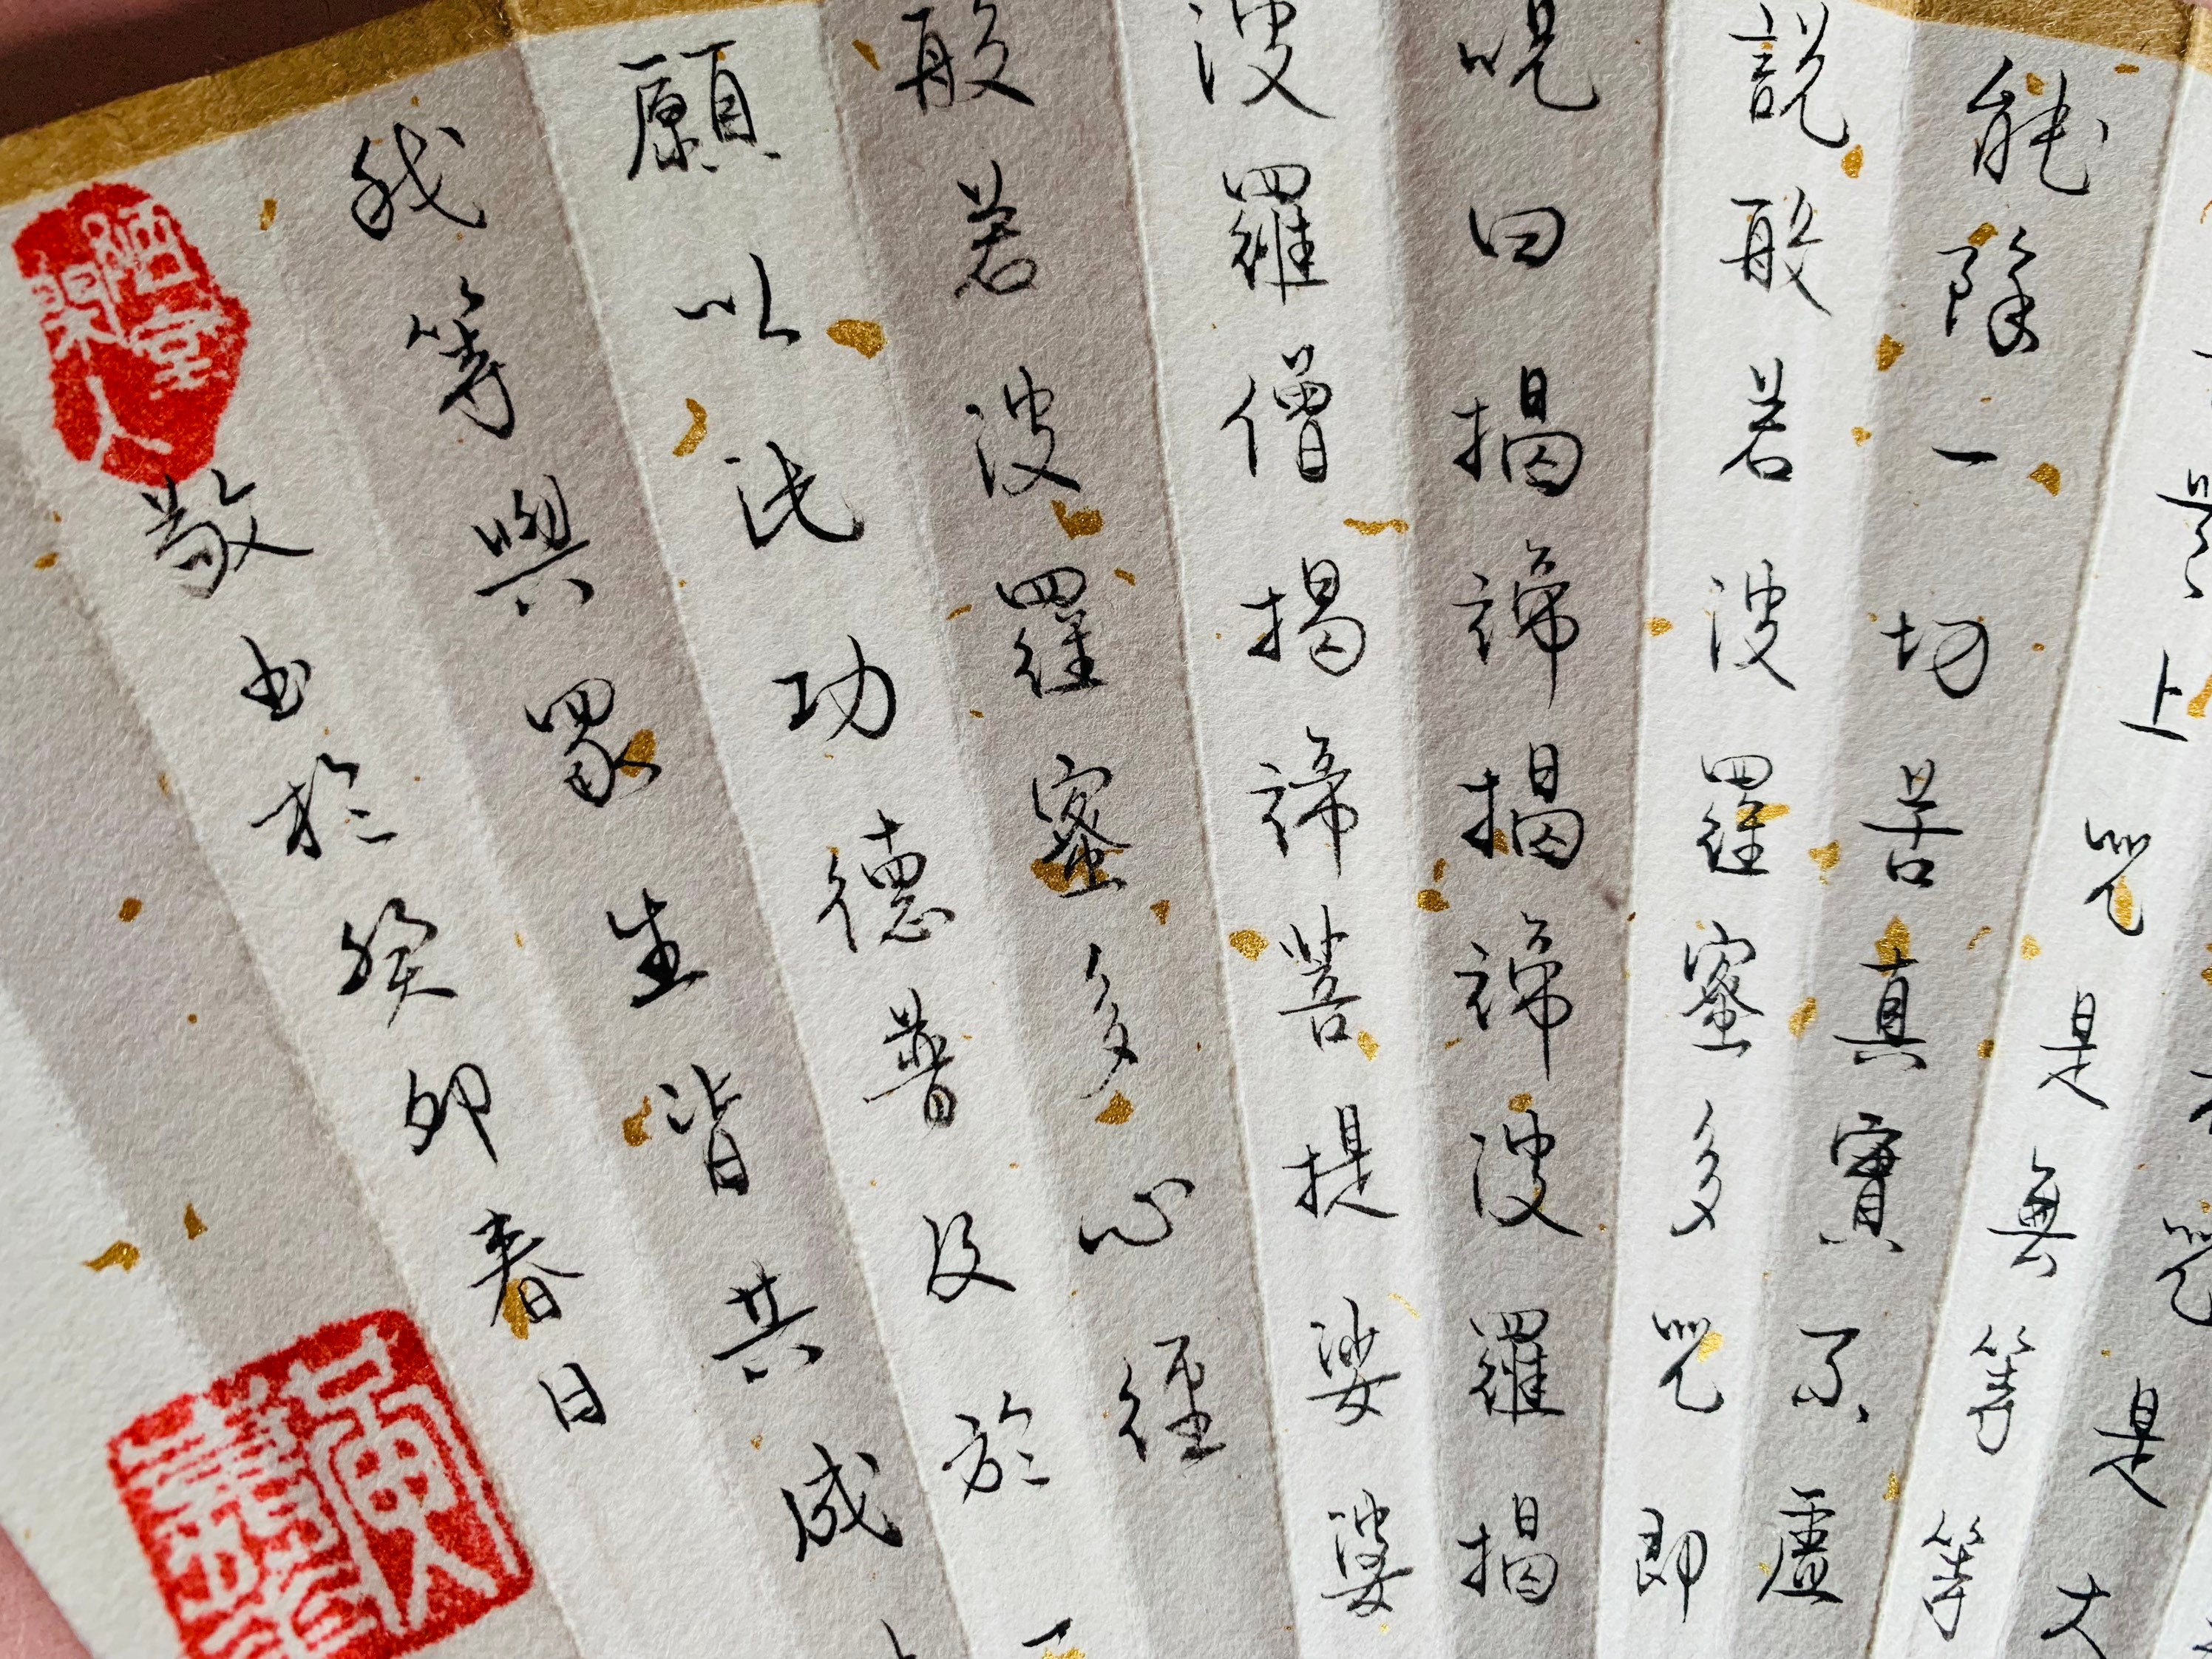 咒是大
上咒是無等等
能除一切苦真實不虛
說般若波羅蜜多咒即
呪曰揭諦揭諦波羅揭
波羅僧揭諦菩提娑婆
般若波羅蜜多心經
願以此功德普及於一
我等與眾生皆共成
敬書於癸卯春日